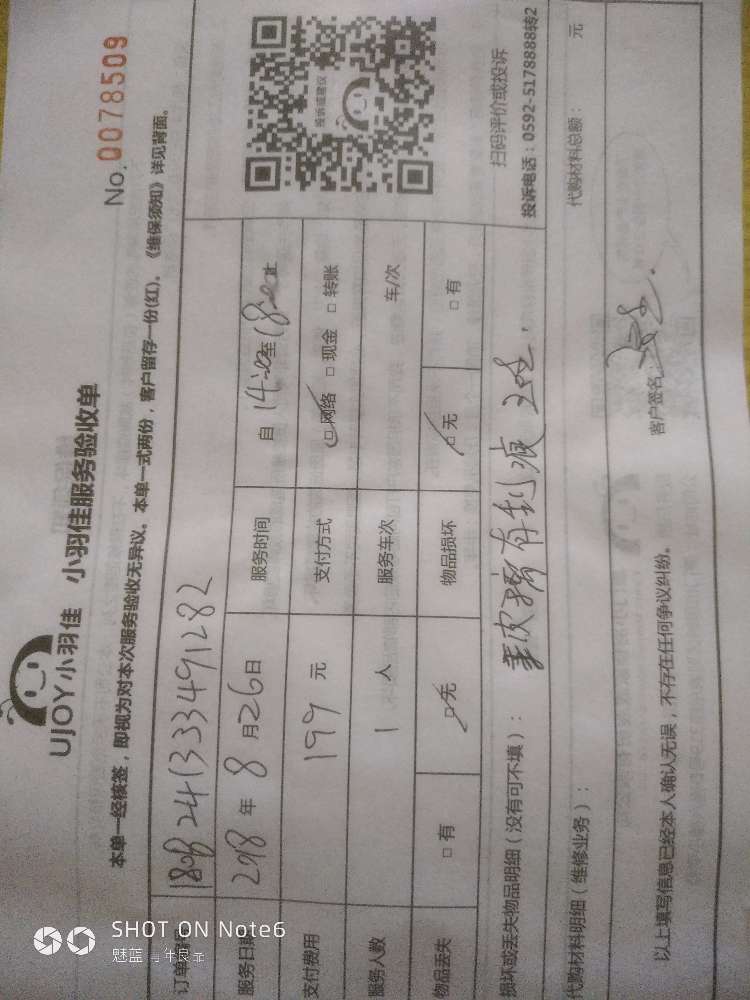 UJOY小羽佳 小羽佳服务验收单
No. 0078509
本单一经核签，即视为对本次服务验收无异议。本单一式两份，客户留存一份(红)。《维保须知》详见背面。
订单编号
服务日期 2018 年 8 月 26 日 服务时间 自 14:00 至 18:00 止
支付费用 199 元 支付方式 □网络 □现金 □转账
服务人数 1 人 服务车次 车/次
物品丢失 □有 □无 物品损坏 □无 □有
投诉或建议
扫码评价或投诉
投诉电话：0592-5178888转2
损坏或丢失物品明细（没有可不填）：
代购材料明细（维修业务）： 代购材料总额： 元
以上填写信息已经本人确认无误，不存在任何争议纠纷。 客户签名：
SHOT ON Note6
魅蓝